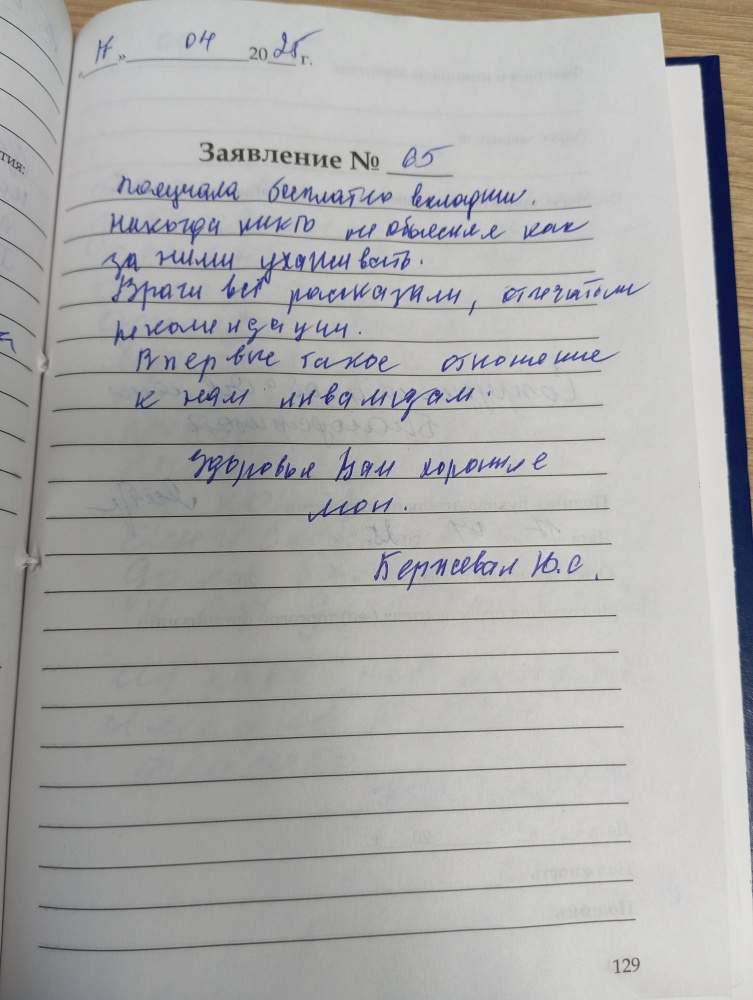 «17» 04 2025 г.
Заявление № 65
Получала бесплатно вкладыши.
Никогда никто не объяснял как
за ними ухаживать.
Врачи всё рассказали, отпечатали
рекомендации.
Впервые такое отношение
к нам инвалидам.
Здоровья Вам хорошие
мои.
Ю.С.
129